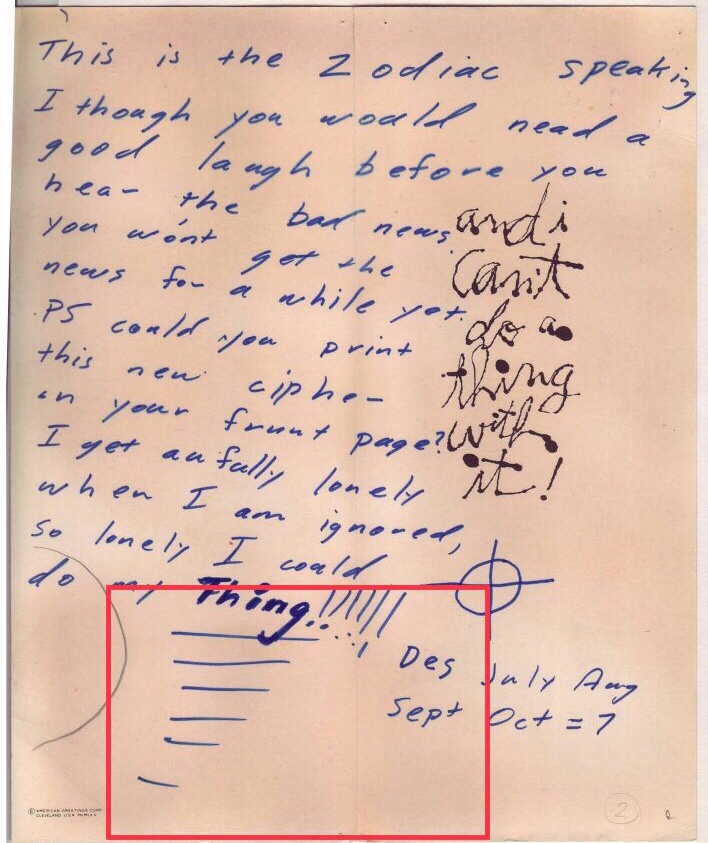 This is the Zodiac speaking
I though you would nead a
good laugh before you
hear the bad news
you won't get the
news for a while yet.
PS could you print
this new cipher
in your frunt page?
I get aufully lonely
when I am ignored,
so lonely I could
do my Thing!!!!!!
and i
can't
do a
thing
with
it!
Des July Aug
Sept Oct = 7
© AMERICAN GREETINGS CORP.
CLEVELAND, U.S.A.
2